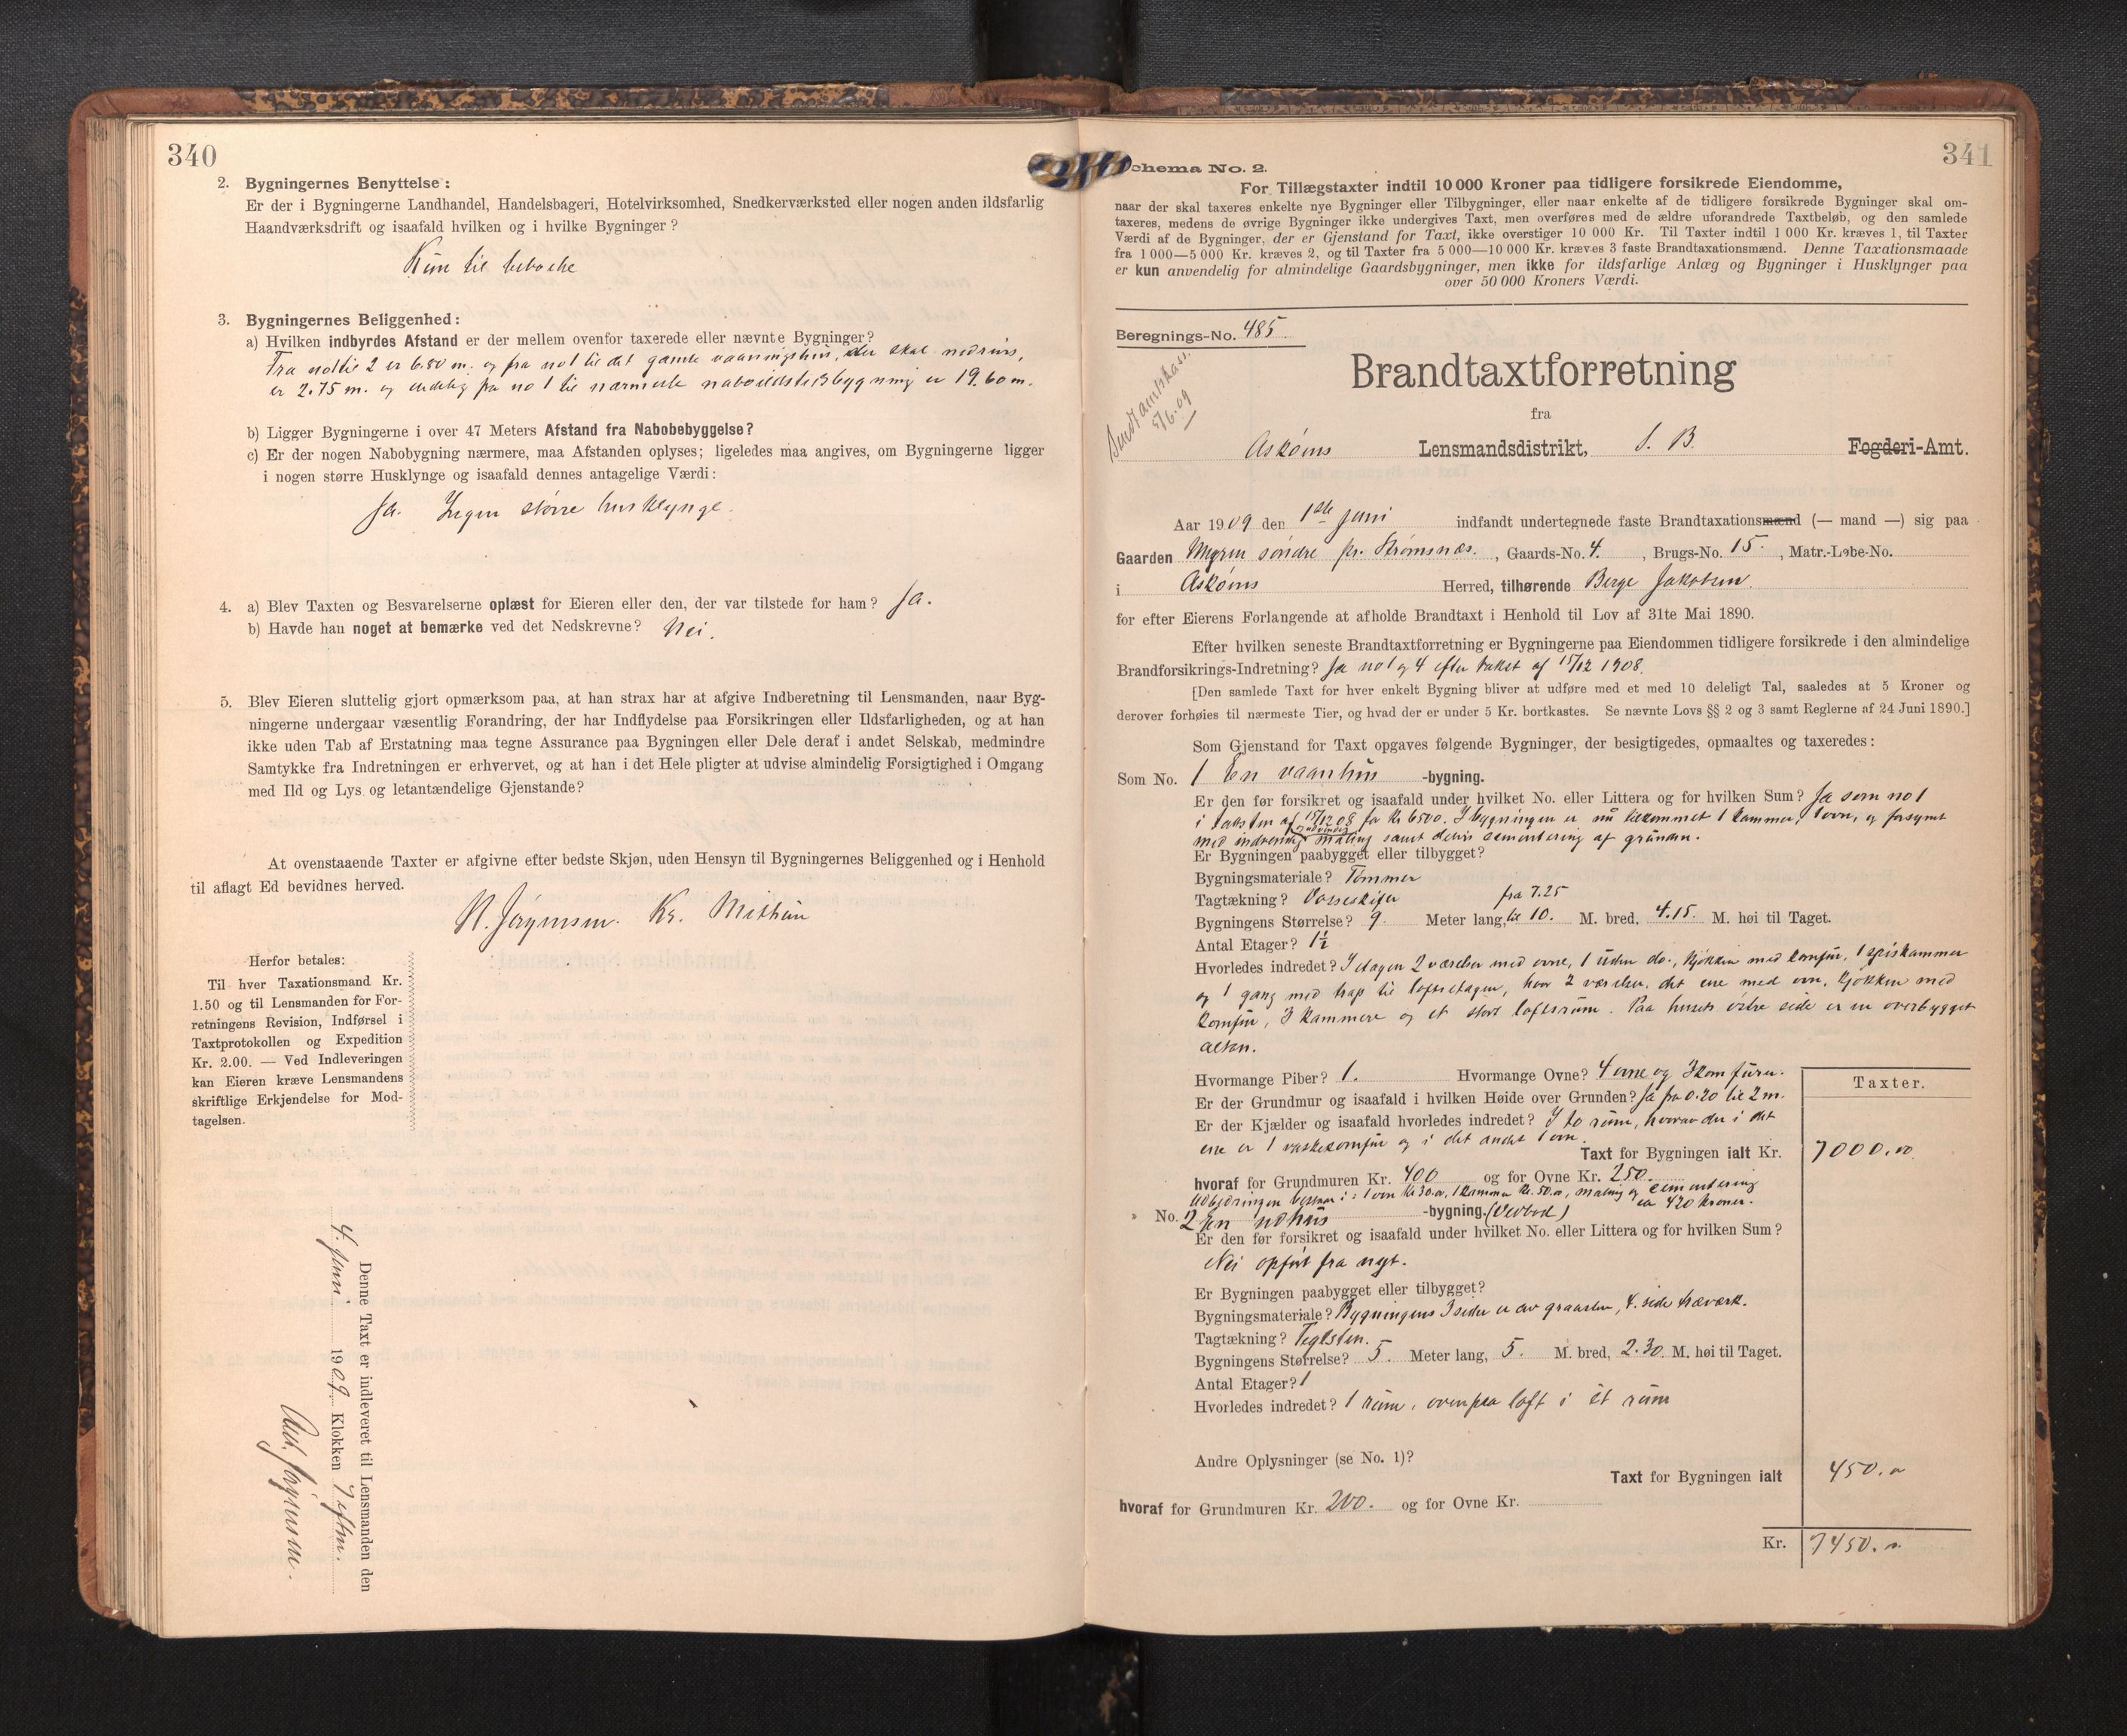 340
2. Bygningernes Benyttelse:
Er der i Bygningerne Landhandel, Handelsbageri, Hotelvirksomhed, Snedkerværksted eller nogen anden ildsfarlig
Haandværksdrift og isaafald hvilken og i hvilke Bygninger?
Kun til beboelse
3. Bygningernes Beliggenhed:
a) Hvilken indbyrdes Afstand er der mellem ovenfor taxerede eller nævnte Bygninger?
Fra no 1 til 2 er 6.80 m. og fra no 1 til det gamle vaaningshus, der skal nedrives,
er 2.75 m. og endelig fra no 1 til nærmeste naboildstedsbygning er 19.60 m.
b) Ligger Bygningerne i over 47 Meters Afstand fra Nabobebyggelse?
c) Er der nogen Nabobygning nærmere, maa Afstanden oplyses; ligeledes maa angives, om Bygningerne ligger
i nogen større Husklynge og isaafald dennes antagelige Værdi:
Ja. Ingen større husklynge.
4. a) Blev Taxten og Besvarelserne oplæst for Eieren eller den, der var tilstede for ham? Ja.
b) Havde han noget at bemærke ved det Nedskrevne? Nei.
5. Blev Eieren sluttelig gjort opmærksom paa, at han strax har at afgive Indberetning til Lensmanden, naar Byg-
ningerne undergaar væsentlig Forandring, der har Indflydelse paa Forsikringen eller Ildsfarligheden, og at han
ikke uden Tab af Erstatning maa tegne Assurance paa Bygningen eller Dele deraf i andet Selskab, medmindre
Samtykke fra Indretningen er erhvervet, og at han i det Hele pligter at udvise almindelig Forsigtighed i Omgang
med Ild og Lys og letantændelige Gjenstande?
At ovenstaaende Taxter er afgivne efter bedste Skjøn, uden Hensyn til Bygningernes Beliggenhed og i Henhold
til aflagt Ed bevidnes herved.
N. Jørgensen. Kr. Mithun
Herfor betales:
Til hver Taxationsmand Kr.
1.50 og til Lensmanden for For-
retningens Revision, Indførsel i
Taxtprotokollen og Expedition
Kr. 2.00. — Ved Indleveringen
kan Eieren kræve Lensmandens
skriftlige Erkjendelse for Mod-
tagelsen.
Denne Taxt er indleveret til Lensmanden den
4. Juni 1909 Klokken 7 efterm.
Jørgensen.
341
Schema No. 2.
For Tillægstaxter indtil 10 000 Kroner paa tidligere forsikrede Eiendomme,
naar der skal taxeres enkelte nye Bygninger eller Tilbygninger, eller naar enkelte af de tidligere forsikrede Bygninger skal om-
taxeres, medens de øvrige Bygninger ikke undergives Taxt, men overføres med de ældre uforandrede Taxtbeløb, og den samlede
Værdi af de Bygninger, der er Gjenstand for Taxt, ikke overstiger 10 000 Kr. Til Taxter indtil 1 000 Kr. kræves 1, til Taxter
fra 1 000—5 000 Kr. kræves 2, og til Taxter fra 5 000—10 000 Kr. kræves 3 faste Brandtaxationsmænd. Denne Taxationsmaade
er kun anvendelig for almindelige Gaardsbygninger, men ikke for ildsfarlige Anlæg og Bygninger i Husklynger paa
over 50 000 Kroners Værdi.
Beregnings-No. 485
Sendt amtskass.
5/6.09
Brandtaxtforretning
fra
Askøens Lensmandsdistrikt, S. B. Fogderi-Amt.
Aar 1909 den 1ste Juni indfandt undertegnede faste Brandtaxationsmænd (— mand —) sig paa
Gaarden Myren søndre pr. Strømsnæs., Gaards-No. 4., Brugs-No. 15., Matr.-Løbe-No.
i Askøens Herred, tilhørende Berge Jakobsen
for efter Eierens Forlangende at afholde Brandtaxt i Henhold til Lov af 31te Mai 1890.
Efter hvilken seneste Brandtaxtforretning er Bygningerne paa Eiendommen tidligere forsikrede i den almindelige
Brandforsikrings-Indretning? Ja no 1 og 4 efter takst af 15/12 1908.
[Den samlede Taxt for hver enkelt Bygning bliver at udføre med et med 10 deleligt Tal, saaledes at 5 Kroner og
derover forhøies til nærmeste Tier, og hvad der er under 5 Kr. bortkastes. Se nævnte Lovs §§ 2 og 3 samt Reglerne af 24 Juni 1890.]
Som Gjenstand for Taxt opgaves følgende Bygninger, der besigtigedes, opmaaltes og taxeredes:
Som No. 1 En vaanhus -bygning.
Er den før forsikret og isaafald under hvilket No. eller Littera og for hvilken Sum? Ja som no 1
i taksten af 15/12 08 for Kr 6500. I bygningen er nu tilkommet 1 kammer, 1 ovn, og forsynt
med indvendig og udvendig maling samt delvis cementering af grunden.
Er Bygningen paabygget eller tilbygget?
Bygningsmateriale? Tømmer
Tagtækning? Vosseskifer
Bygningens Størrelse? 9 Meter lang, fra 7.25 til 10. M. bred, 4.15. M. høi til Taget.
Antal Etager? 1½
Hvorledes indredet? I etagen 2 værelser med ovne, 1 uden do., kjøkken med komfur, 1 spiskammer
og 1 gang med trap til loftsetagen, hvor 2 værelser, det ene med ovn, kjøkken med
komfur, 3 kammere og et stort loftsrum. Paa husets østre side er en overbygget
altan.
Hvormange Piber? 1. Hvormange Ovne? 4 ovne og 3 komfurer.
Er der Grundmur og isaafald i hvilken Høide over Grunden? Ja fra 0.20 til 2 m.
Er der Kjælder og isaafald hvorledes indredet? I to rum, hvorav der i det
ene er 1 vaskekomfur og i det andet 1 ovn.
Taxter.
Taxt for Bygningen ialt Kr. 7000.00
hvoraf for Grundmuren Kr. 400 og for Ovne Kr. 250.
Udbedringen bestaar i: 1 ovn Kr 30.00, 1 kammer Kr. 50.00, maling og cementering
ca 420 kroner.
No. 2 En udhus -bygning. (Vedbod)
Er den før forsikret og isaafald under hvilket No. eller Littera og for hvilken Sum?
Nei opført fra nyt.
Er Bygningen paabygget eller tilbygget?
Bygningsmateriale? Bygningens 3 sider er av graasten, 4. side træværk.
Tagtækning? Teglsten.
Bygningens Størrelse? 5. Meter lang, 5. M. bred, 2.30. M. høi til Taget.
Antal Etager? 1
Hvorledes indredet? 1 rum, ovenpaa loft i et rum
Andre Oplysninger (se No. 1)?
Taxt for Bygningen ialt 450.00
hvoraf for Grundmuren Kr. 200. og for Ovne Kr.
Kr. 7450.00